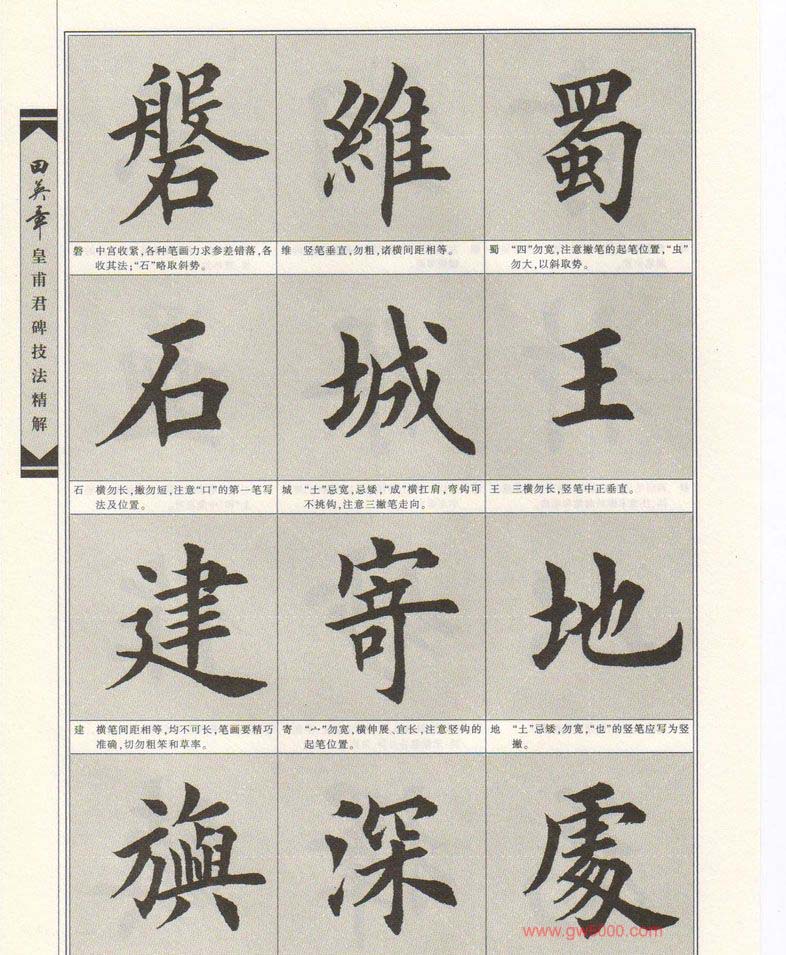 田英章
皇甫君碑技法精解
磐 維 蜀
磐 中宫收紧,各种笔画力求参差错落,各
收其法;“石”略取斜势。
维 竖笔垂直,勿粗,诸横间距相等。
蜀 “四”勿宽,注意撇笔的起笔位置,“虫”
勿大,以斜取势。
石 城 王
石 横勿长,撇勿短,注意“口”的第一笔写
法及位置。
城 “土”忌宽,忌矮,“成”横扛肩,弯钩可
不挑钩,注意三撇笔走向。
王 三横勿长,竖笔中正垂直。
建 寄 地
建 横笔间距相等,均不可长,笔画要精巧
准确,切勿粗笨和草率。
寄 “宀”勿宽,横伸展、宜长,注意竖钩的
起笔位置。
地 “土”忌矮,勿宽,“也”的竖笔应写为竖
撇。
旟 深 處
www.gw5000.com